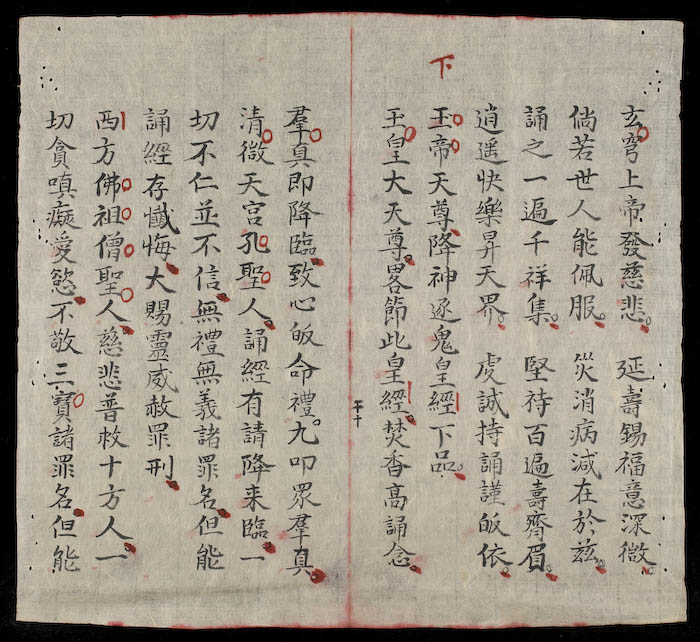 玄穹上帝發慈悲。 延壽錫福意深微。
倘若世人能佩服。 災消病減在於茲。
誦之一遍千祥集。 堅持百遍壽齊眉。
逍遥快樂昇天界。 虔誠持誦謹皈依。
下
玉帝天尊。降神逐鬼皇經下品。
玉皇大天尊。畧節此皇經。焚香高誦念。
羣真即降臨。致心皈命禮。九叩眾羣真。
清微天宮孔聖人。誦經有請降来臨。一
切不仁並不信。無禮無義諸罪名。但能
誦經存懺悔。大賜靈威赦罪刑。
西方佛祖僧聖人。慈悲普救十方人。一
切貪嗔癡愛慾。不敬三寶諸罪名。但能